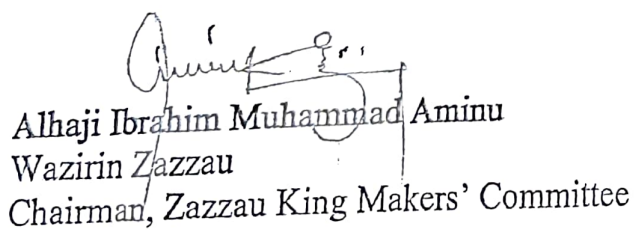 Alhaji Ibrahim Muhammad Aminu
Wazirin Zazzau
Chairman, Zazzau King Makers' Committee